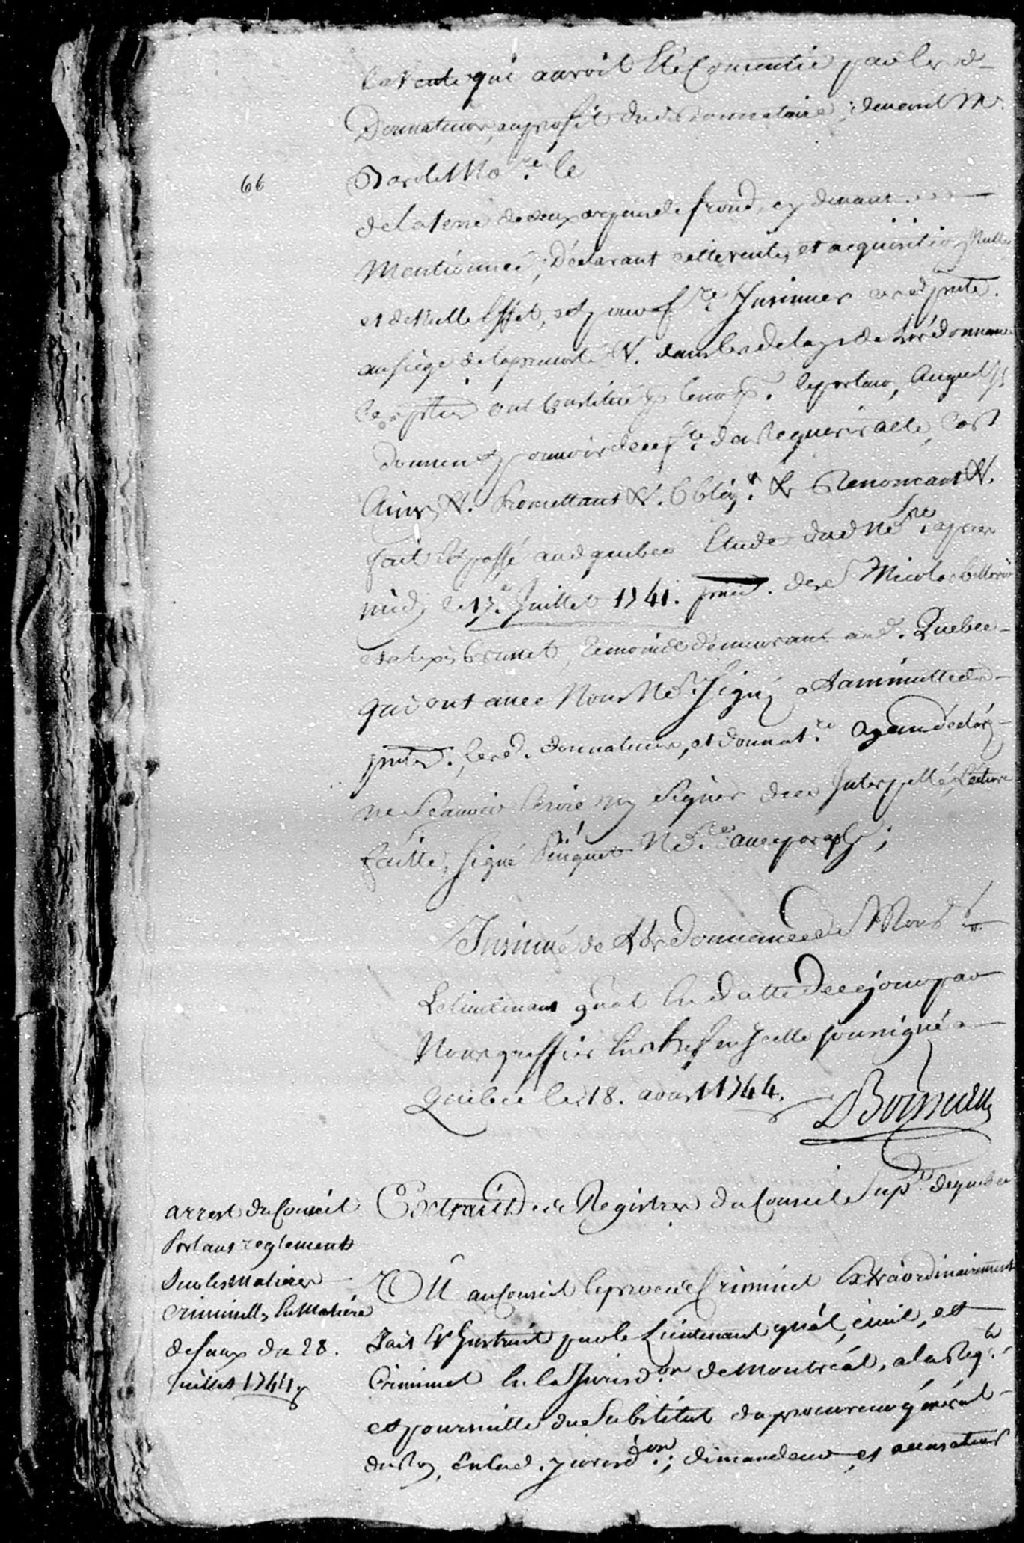 la vente qui auroit Eté Consentie par les d.
Donnateurs, au profit dud. donnataire, devant Me
Barolet No.re le
66
de la terre de deux arpens de front, cy devant
Mentionnée, Déclarant cette vente, et acquisition Nulle
et de Nulle Effet, et pour f.re Insinuer ces d. pntes.
au siége de la prevosté &. dans les delays de L'ordonnance
les parties ont Constitué p. leur p. le porteur, Auquel Ils
donnent pouvoir de ce f.re et de Requerir acte, Car
Ainsy &. Promettant &. Obligt. &. Renonçant &.
fait Et passé aud. quebec Etude dud. No.re apres
midy le 17.e Juillet 1741. prnce. des S. Nicolas
et Brunet, temoins demeurant aud. Quebec
qui ont avec Nous No.re Signé a la minutte des
pntes. les d. donnateurs, et donnat.re ayant déclaré
ne Scavoir Ecrire ny Signer de ce Interpellé, Lecture
faitte, Signé Pinguet No.re avec paraphe;
Insinué de L'ordonnance de Mons.r
Le Lieutenant gnal En datte de ce jour par
Nous greffier En chef En Icelle soussigné a
Quebec le 18. aoust 1744.
Boisseau
arrest du Conseil
Portant reglement
Sur les Matieres
Criminelles En Matiere
de faux du 28.
Juillet 1744
Extrait des Registres du Conseil Sup.r de quebec
VEU au Conseil le procès Criminel Extraordinairement
Fait Et Instruit par le Lieutenant gnâl, civil, et
Criminel En la Jurisd.on de Montréal, a la Req.te
et poursuitte du Substitut du procureur général
du Roy En lad. jurisd.on, demandeur et accusateur